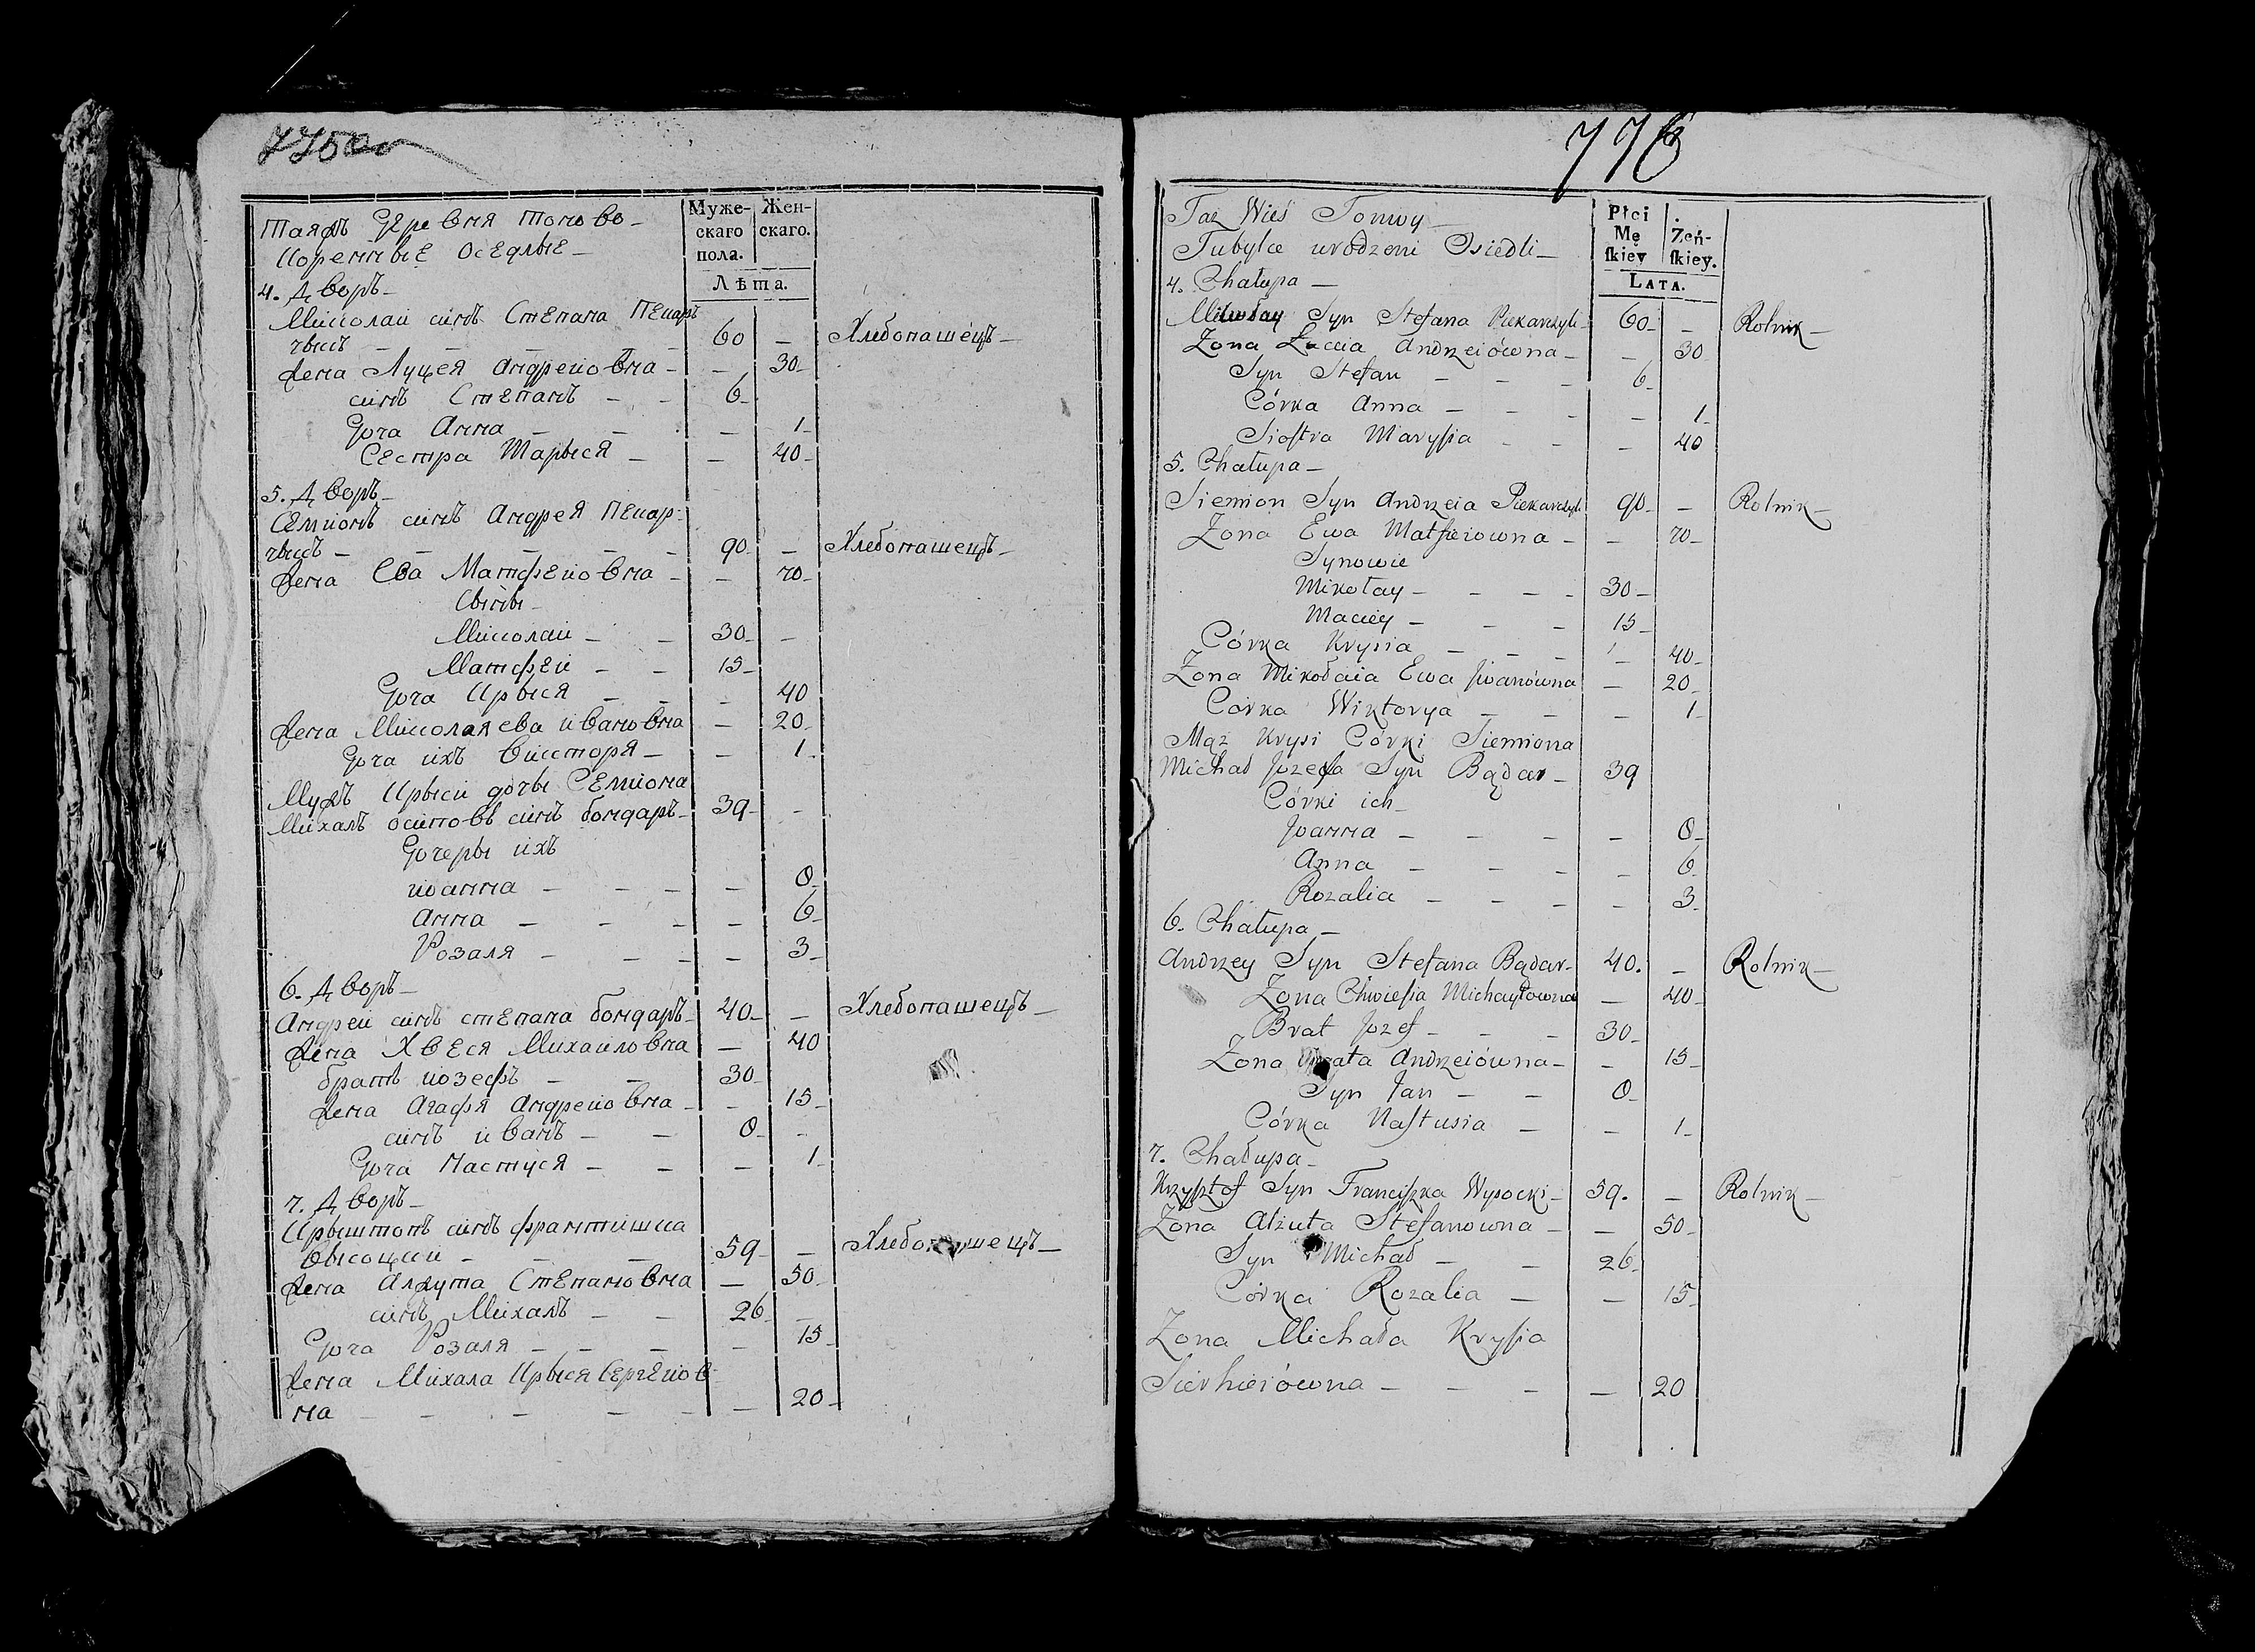 775 об
Таяжъ Деревня Тоново
Коренные Оседлые
Муже-
скаго
пола.
Жен-
скаго.
Лѣта.
4. Дворъ
Миколай синъ Степана Пекар
чикъ 60 — Хлебопашецъ
жена Луцея Андрейовна — 30
синъ Степанъ 6
Доча Анна — 1
Сестра Марыся — 40
5. Дворъ
Семионъ синъ Андрея Пекар:
чикъ — 90 — Хлебопашецъ
жена Ева Матфейовна — 70
Сыны
Миколай — 30 —
Матфей — 15
Доча Крыся — 40
жена Миколая ева ивановна — 20
Доча ихъ Викторя — 1
Мужъ Крыси дочы Семиона
Михалъ осиповъ синъ бондаръ 39 —
Дочеры ихъ
иоанна — 8
Анна — 6
Розаля — 3
6. Дворъ
Андрей синъ степана бондаръ 40 — Хлебопашецъ
жена Хвеся Михайловна — 40
братъ иозефъ — 30
жена Агафя Андрейовна — 15
синъ иванъ — 8 —
Доча Настуся — 1
7. Дворъ
Крыштопъ синъ франтишка
Высоцкий — 59 — Хлебопашецъ
жена Алжута Степановна — 50
синъ Михалъ — 26 —
Доча Розаля — 15
жена Михала Крыся Сергейов
на — 20
776
Taż Wieś Tonwy
Tubylce urodzeni Osiedli
Płci
Mę
skiey
Żeń-
skiey.
LATA.
4. Chałupa
Mikołay Syn Stefana Piekarczyk 60 — Rolnik
Zona Łucia Andrzeiówna — 30
Syn Stefan — 6
Córka Anna — 1
Siostra Marysia — 40
5. Chałupa
Siemion Syn Andrzeia Piekarczyk 90 — Rolnik
Zona Ewa Matfieiowna — 70
Synowie
Mikołay — 30
Maciey — 15
Córka Krysia — 40
Zona Mikołaia Ewa Jwanówna — 20
Córka Wiktorya — 1
Mąż Krysi Córki Siemiona
Michał Jozefa Syn Bądar 39
Córki ich
Joanna — 8
Anna — 6
Rozalia — 3
6. Chałupa
Andrzey Syn Stefana Bądar 40. — Rolnik
Zona Chwiesia Michayłowna — 40
Brat Jozef — 30
Zona Andrzeiówna — 15
Syn Jan — 8
Córka Nastusia — 1
7. Chałupa
Krzysztof Syn Franciszka Wysocki 59. — Rolnik
Zona Alżuta Stefanowna — 50
Syn Michał — 26
Córka Rozalia — 15
Zona Michała Krysia
Sierhieiówna — 20